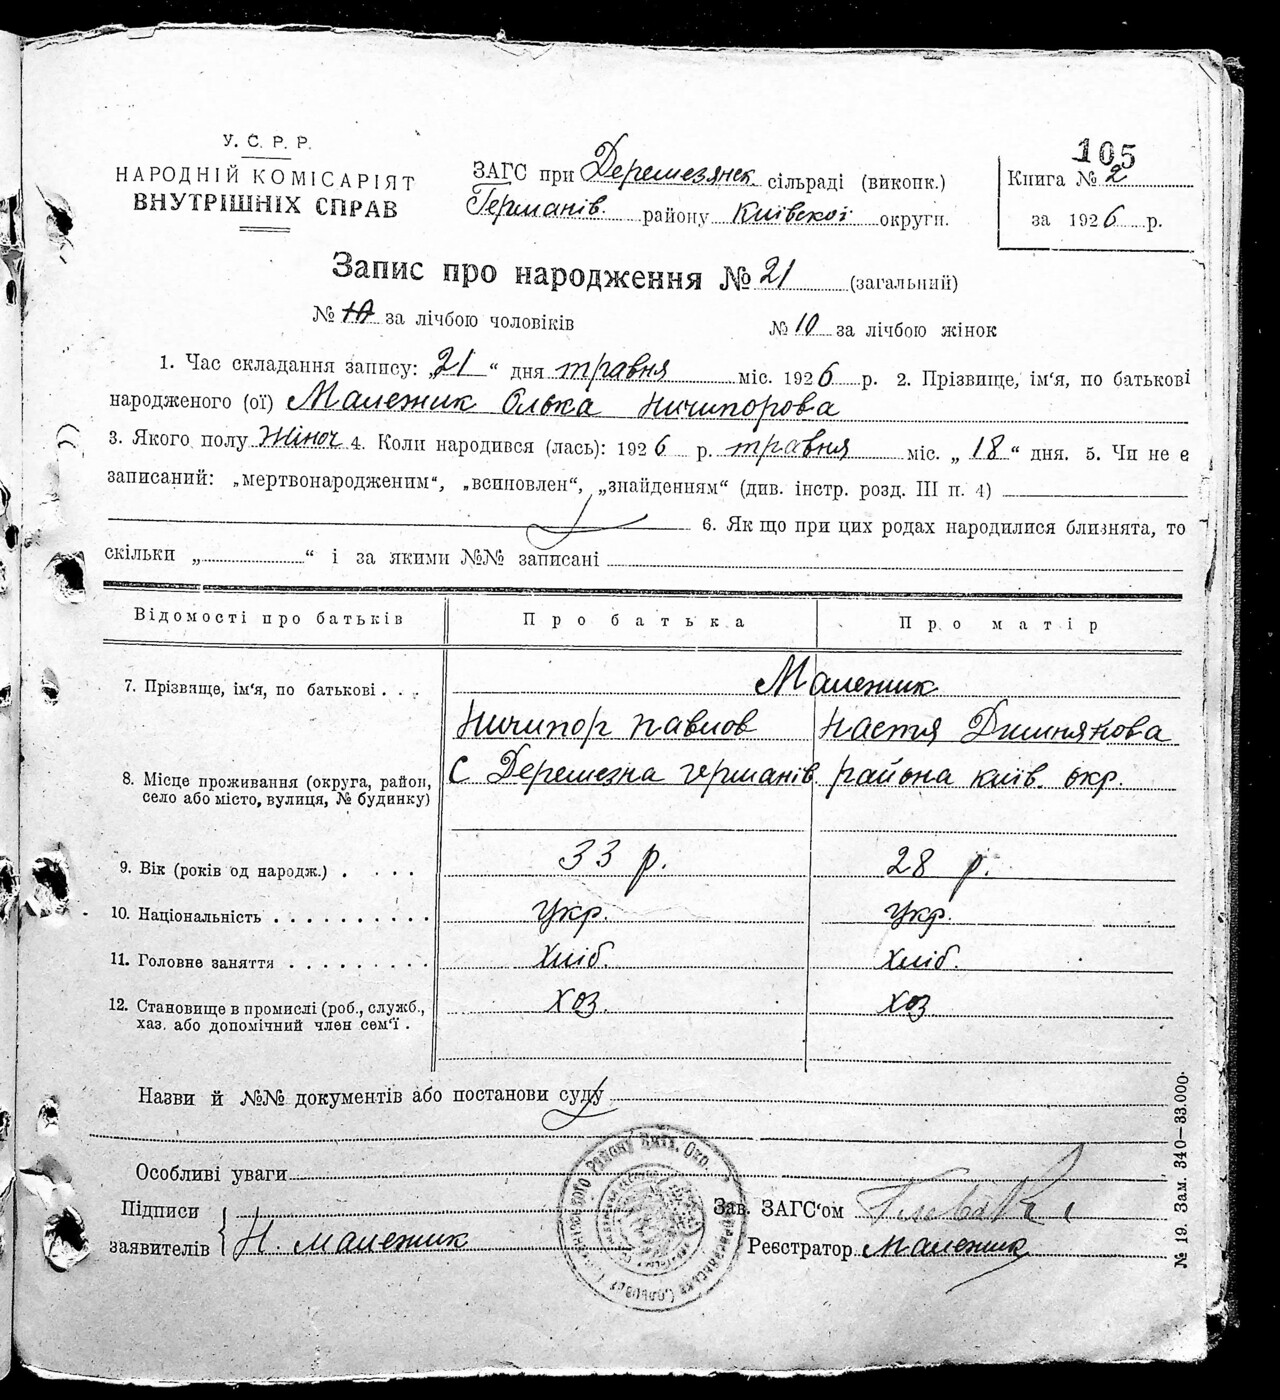 105
У. С. Р. Р.
НАРОДНІЙ КОМІСАРІЯТ
ВНУТРІШНІХ СПРАВ
ЗАГС при Деремезянск. сільраді (викопк.)
Германів. району Київської округи.
Книга № 2
за 1926 р.
Запис про народження № 21 (загальний)
№ 10 за лічбою чоловіків № 10 за лічбою жінок
1. Час складання запису: „21“ дня травня міс. 1926 р. 2. Прізвище, ім'я, по батькові
народженого (ої) Малежик Олька Ничипорова
3. Якого полу Жіноч 4. Коли народився (лась): 1926 р. травня міс. „18“ дня. 5. Чи не є
записаний: „мертвонародженим“, „всиновлен“, „знайденням“ (див. інстр. розд. III п. 4)
6. Як що при цих родах народилися близнята, то
скільки „ “ і за якими №№ записані
Відомості про батьків Про батька Про матір
7. Прізвище, ім'я, по батькові . . . Малежик
Ничипор Павлов Настя
8. Місце проживання (округа, район, село або місто, вулиця, № будинку) С Деремезна германів. района київ. окр.
9. Вік (років од народж.) . . . . 33 р. 28 р.
10. Національність . . . . . . . . . . Укр. Укр.
11. Головне заняття . . . . . . . . . Хліб. Хліб.
12. Становище в промислі (роб., служб., хаз. або допомічний член сем'ї . Хоз. Хоз
Назви й №№ документів або постанови суду
Особливі уваги
Підписи
заявителів Н. Малежик
Зав. ЗАГС'ом
Реєстратор Малежик
№ 19. Зам. 340—33.000.